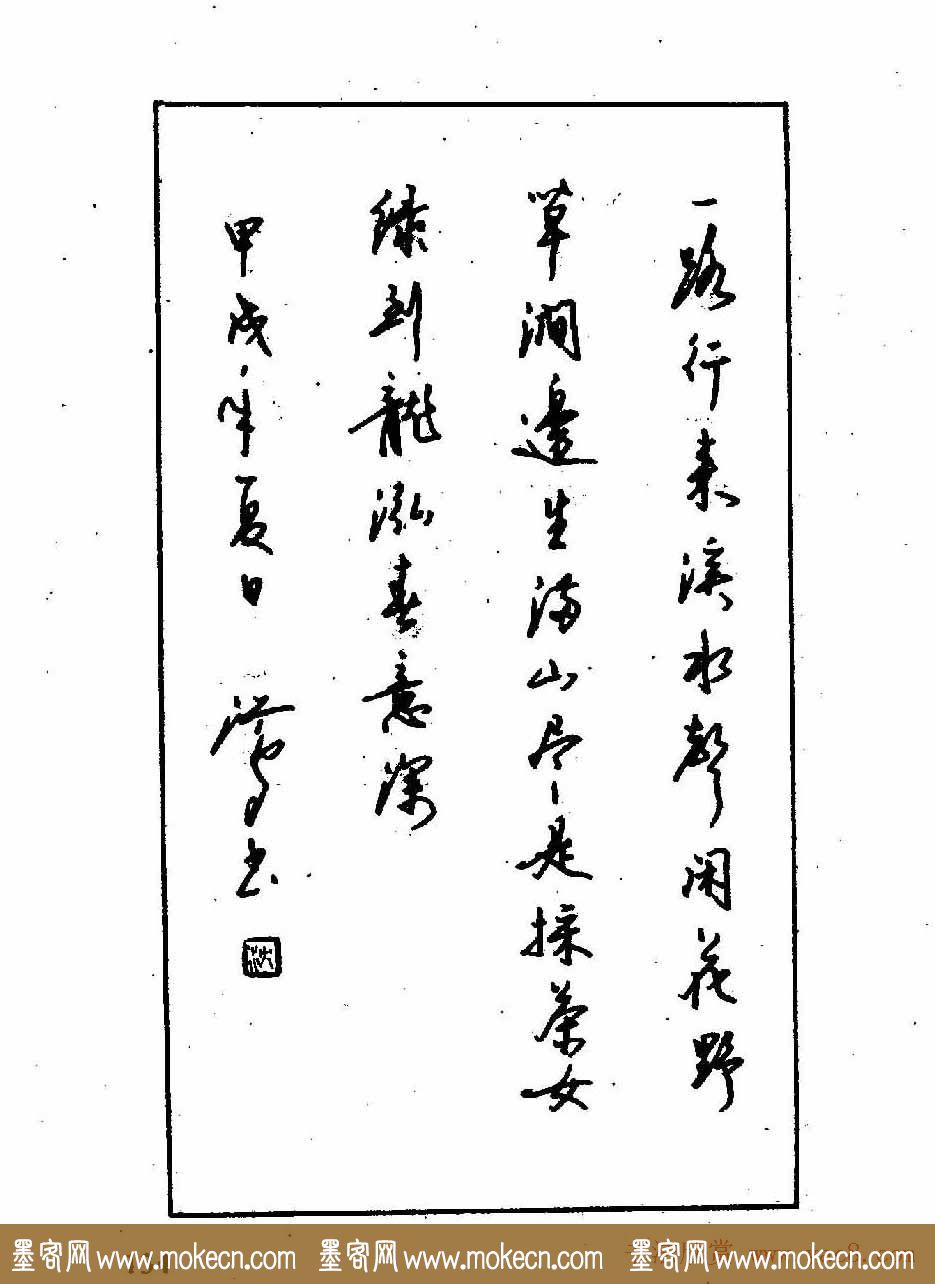 一路行来溪水声闲花野
草涧边生满山尽是採茶女
才到龍泓春意深
甲戌年夏日 鸿书
沈
墨客网 www.mokecn.com 墨客网 www.mokecn.com 墨客网 www.mokecn.com